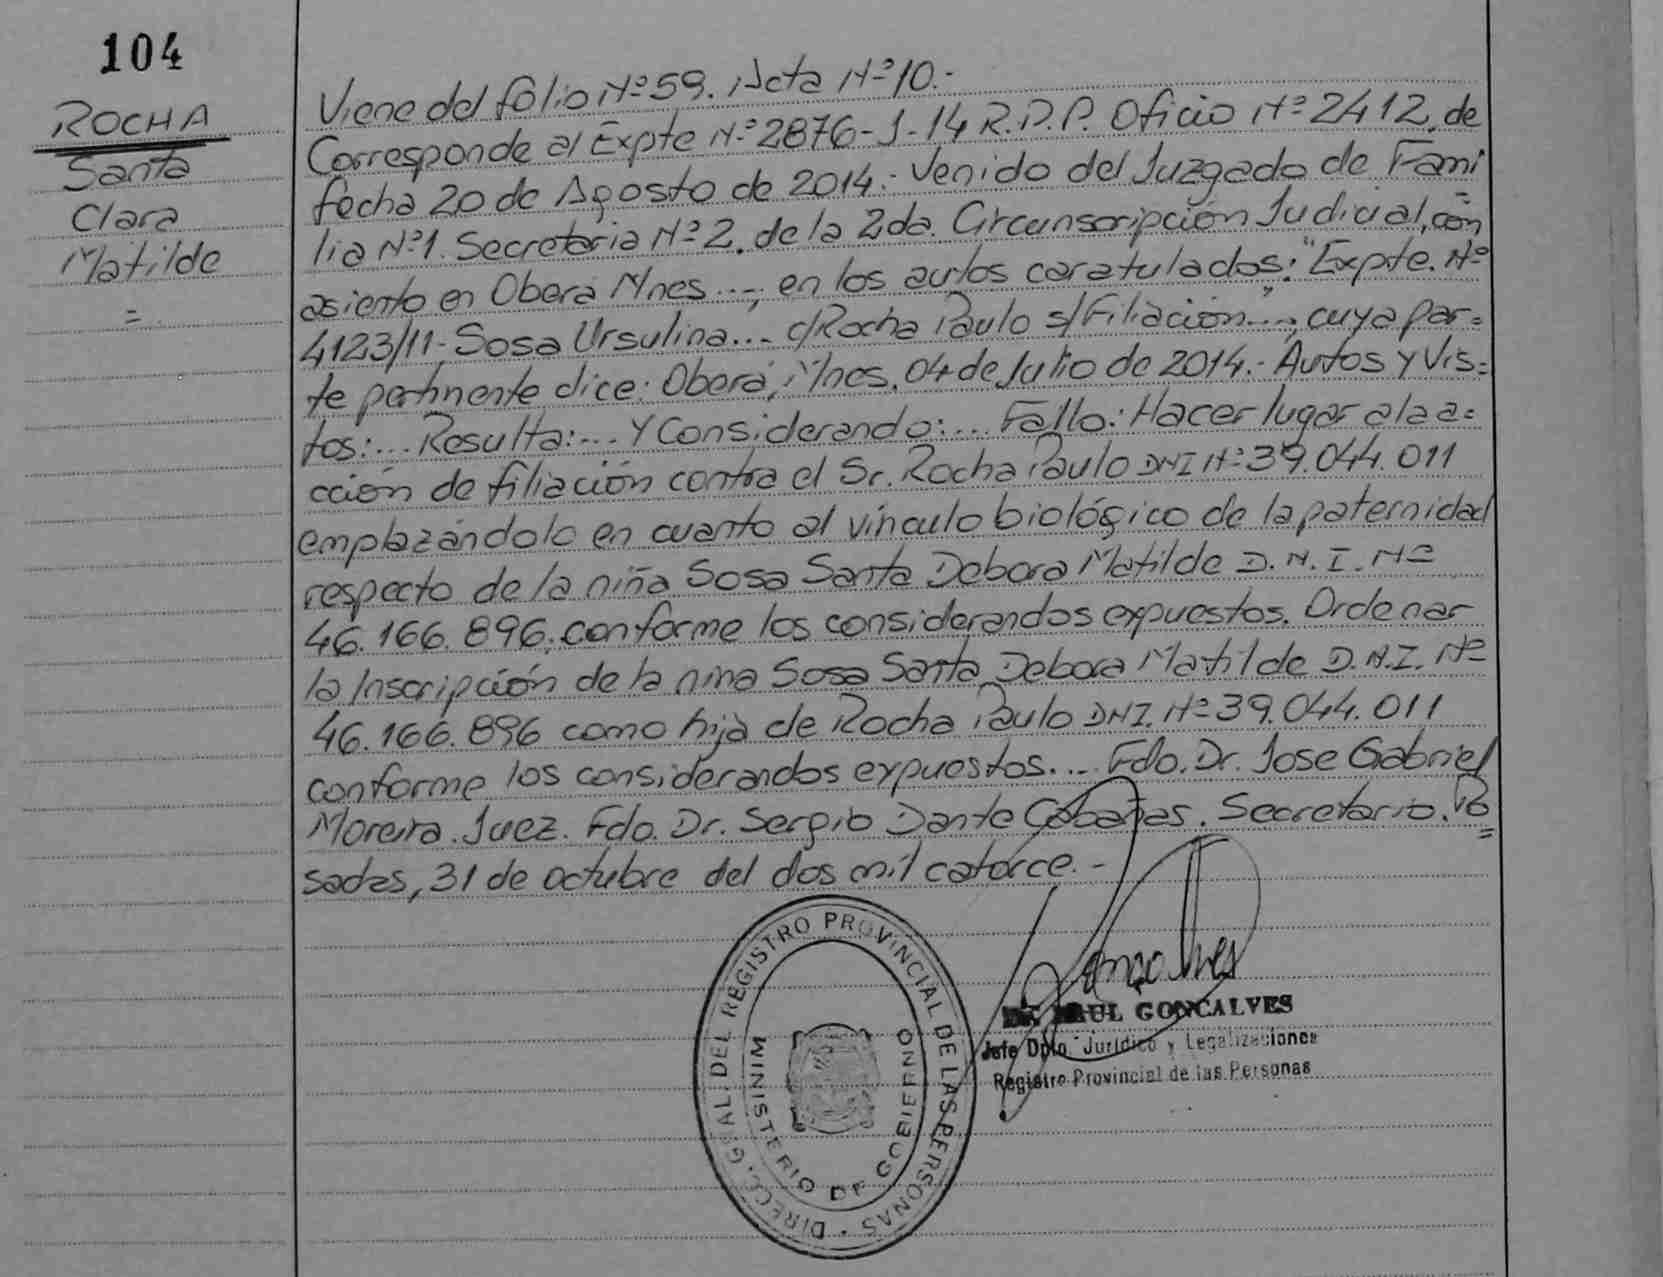 104
ROCHA
Santa
Clara
Matilde
=
Viene del folio Nº 59. Acta Nº 10.-
Corresponde al Expte Nº 2876-J-14 R.P.P. Oficio Nº 2412, de
fecha 20 de Agosto de 2014.- Venido del Juzgado de Fami
lia Nº1. Secretaria Nº 2. de la 2da. Circunscripción Judicial, con
asiento en Oberá Mnes..., en los autos caratulados: "Expte. Nº
4123/11- Sosa Ursulina... c/Rocha Paulo s/Filiación"..., cuya par=
te pertinente dice: Oberá, Mnes, 04 de Julio de 2014.- Autos y Vis=
tos:... Resulta:... Y Considerando:... Fallo: Hacer lugar a la a=
cción de filiación contra el Sr. Rocha Paulo DNI Nº 39.044.011
emplazándolo en cuanto al vínculo biológico de la paternidad
respecto de la niña Sosa Santa Debora Matilde D.N.I. Nº
46.166.896, conforme los considerandos expuestos. Ordenar
la Inscripción de la nina Sosa Santa Debora Matilde D.N.I. Nº
46.166.896 como hija de Rocha Paulo DNI. Nº 39.044.011
conforme los considerandos expuestos.... Fdo. Dr. Jose Gabriel
Moreira. Juez. Fdo. Dr. Sergio Dante Cabañas. Secretario. Po
=
sadas, 31 de octubre del dos mil catorce.-
DIRECC. GRAL. DEL REGISTRO PROVINCIAL DE LAS PERSONAS
MINISTERIO DE GOBIERNO
Goncalves
Dr. RAUL GONCALVES
Jefe Dpto. Jurídico y Legalizaciones
Registro Provincial de las Personas